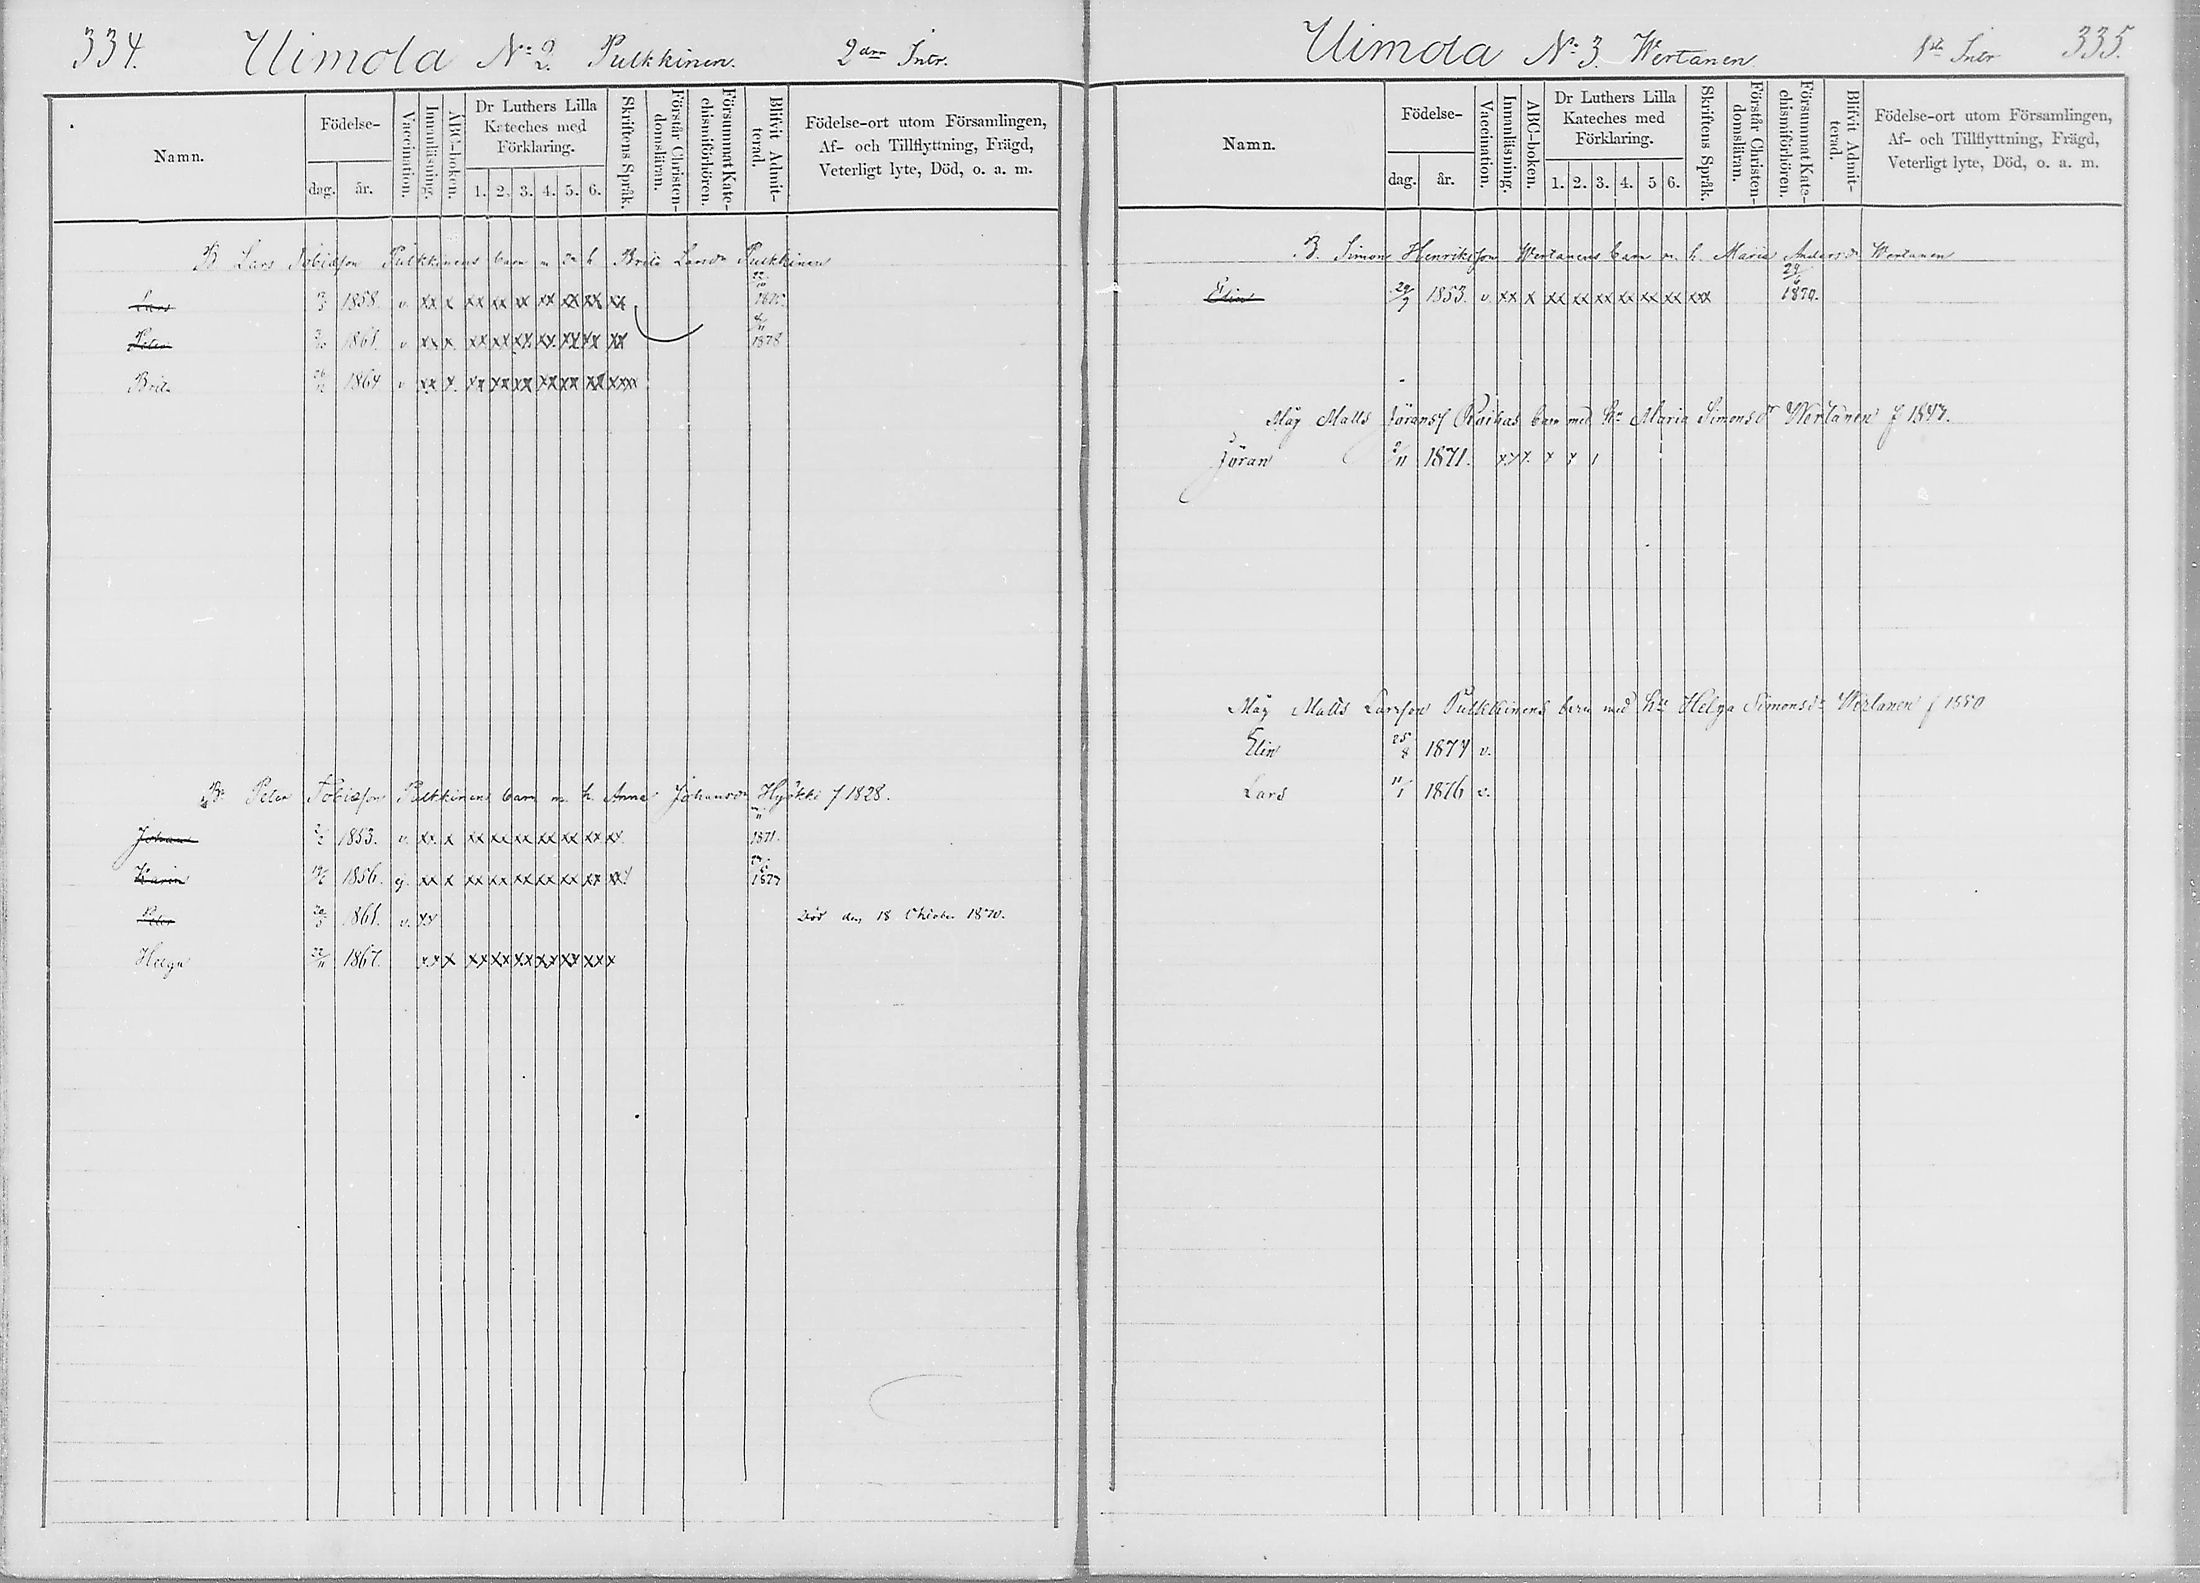 334. Uimola No 2. Pulkkinen. 2dra Intr.
Namn.
Födelse-
dag. år.
Vaccination.
Innanläsning.
ABC-boken.
Dr Luthers Lilla
Kateches med
Förklaring.
1. 2. 3. 4. 5. 6.
Skriftens Språk.
Förstår Christen-
domsläran.
Försummat Kate-
chismiförhören.
Blifvit Admit-
terad.
Födelse-ort utom Församlingen,
Af- och Tillflyttning, Frägd,
Veterligt lyte, Död, o. a. m.
B Lars Tobiasson Pulkkinens barn m h Brita Larsdr Pulkkinen
Lars 1858. v. xx x xx xx xx xx xx xx xx
Peter 1861. v. xx x xx xx xx xx xx xx xx 1878
Brita 1864 v xx x xx xx xx xx xx xx xxx
Br Peter Tobiasson Pulkkinens barn m. h. Anna Johansdr Hyökki f 1828.
Johan 1853. v. xx x xx xx xx xx xx xx xx 1871.
Karin 1856. ej. xx x xx xx xx xx xx xx xx 1877
Peter 1861. v. xx Död den 18 Oktober 1870.
Helga 22/11 1867. xx x xx xx xx xx xx xx x
Uimola No 3. Wertanen 1sta Intr 335.
Namn.
Födelse-
dag. år.
Vaccination.
Innanläsning.
ABC-boken.
Dr Luthers Lilla
Kateches med
Förklaring.
1. 2. 3. 4. 5 6.
Skriftens Språk.
Förstår Christen-
domsläran.
Försummat Kate-
chismiförhören.
Blifvit Admit-
terad.
Födelse-ort utom Församlingen,
Af- och Tillflyttning, Frägd,
Veterligt lyte, Död, o. a. m.
B. Simon Henriksson Wertanens barn m. h. Maria Andersdr Wertanen
Elin 1853. v. xx x xx xx xx xx xx xx xxx 1870.
Måg Matts Jöranss Raikas barn med hu Maria Simonsdr Wertanen f 1847.
Jöran 2/11 1871. xx x. x x 1
Måg Matts Larsson Pulkkinens barn med hu Helga Simonsdr Wertanen f 1850
Elin 25/8 1874 v.
Lars 11/1 1876 v.